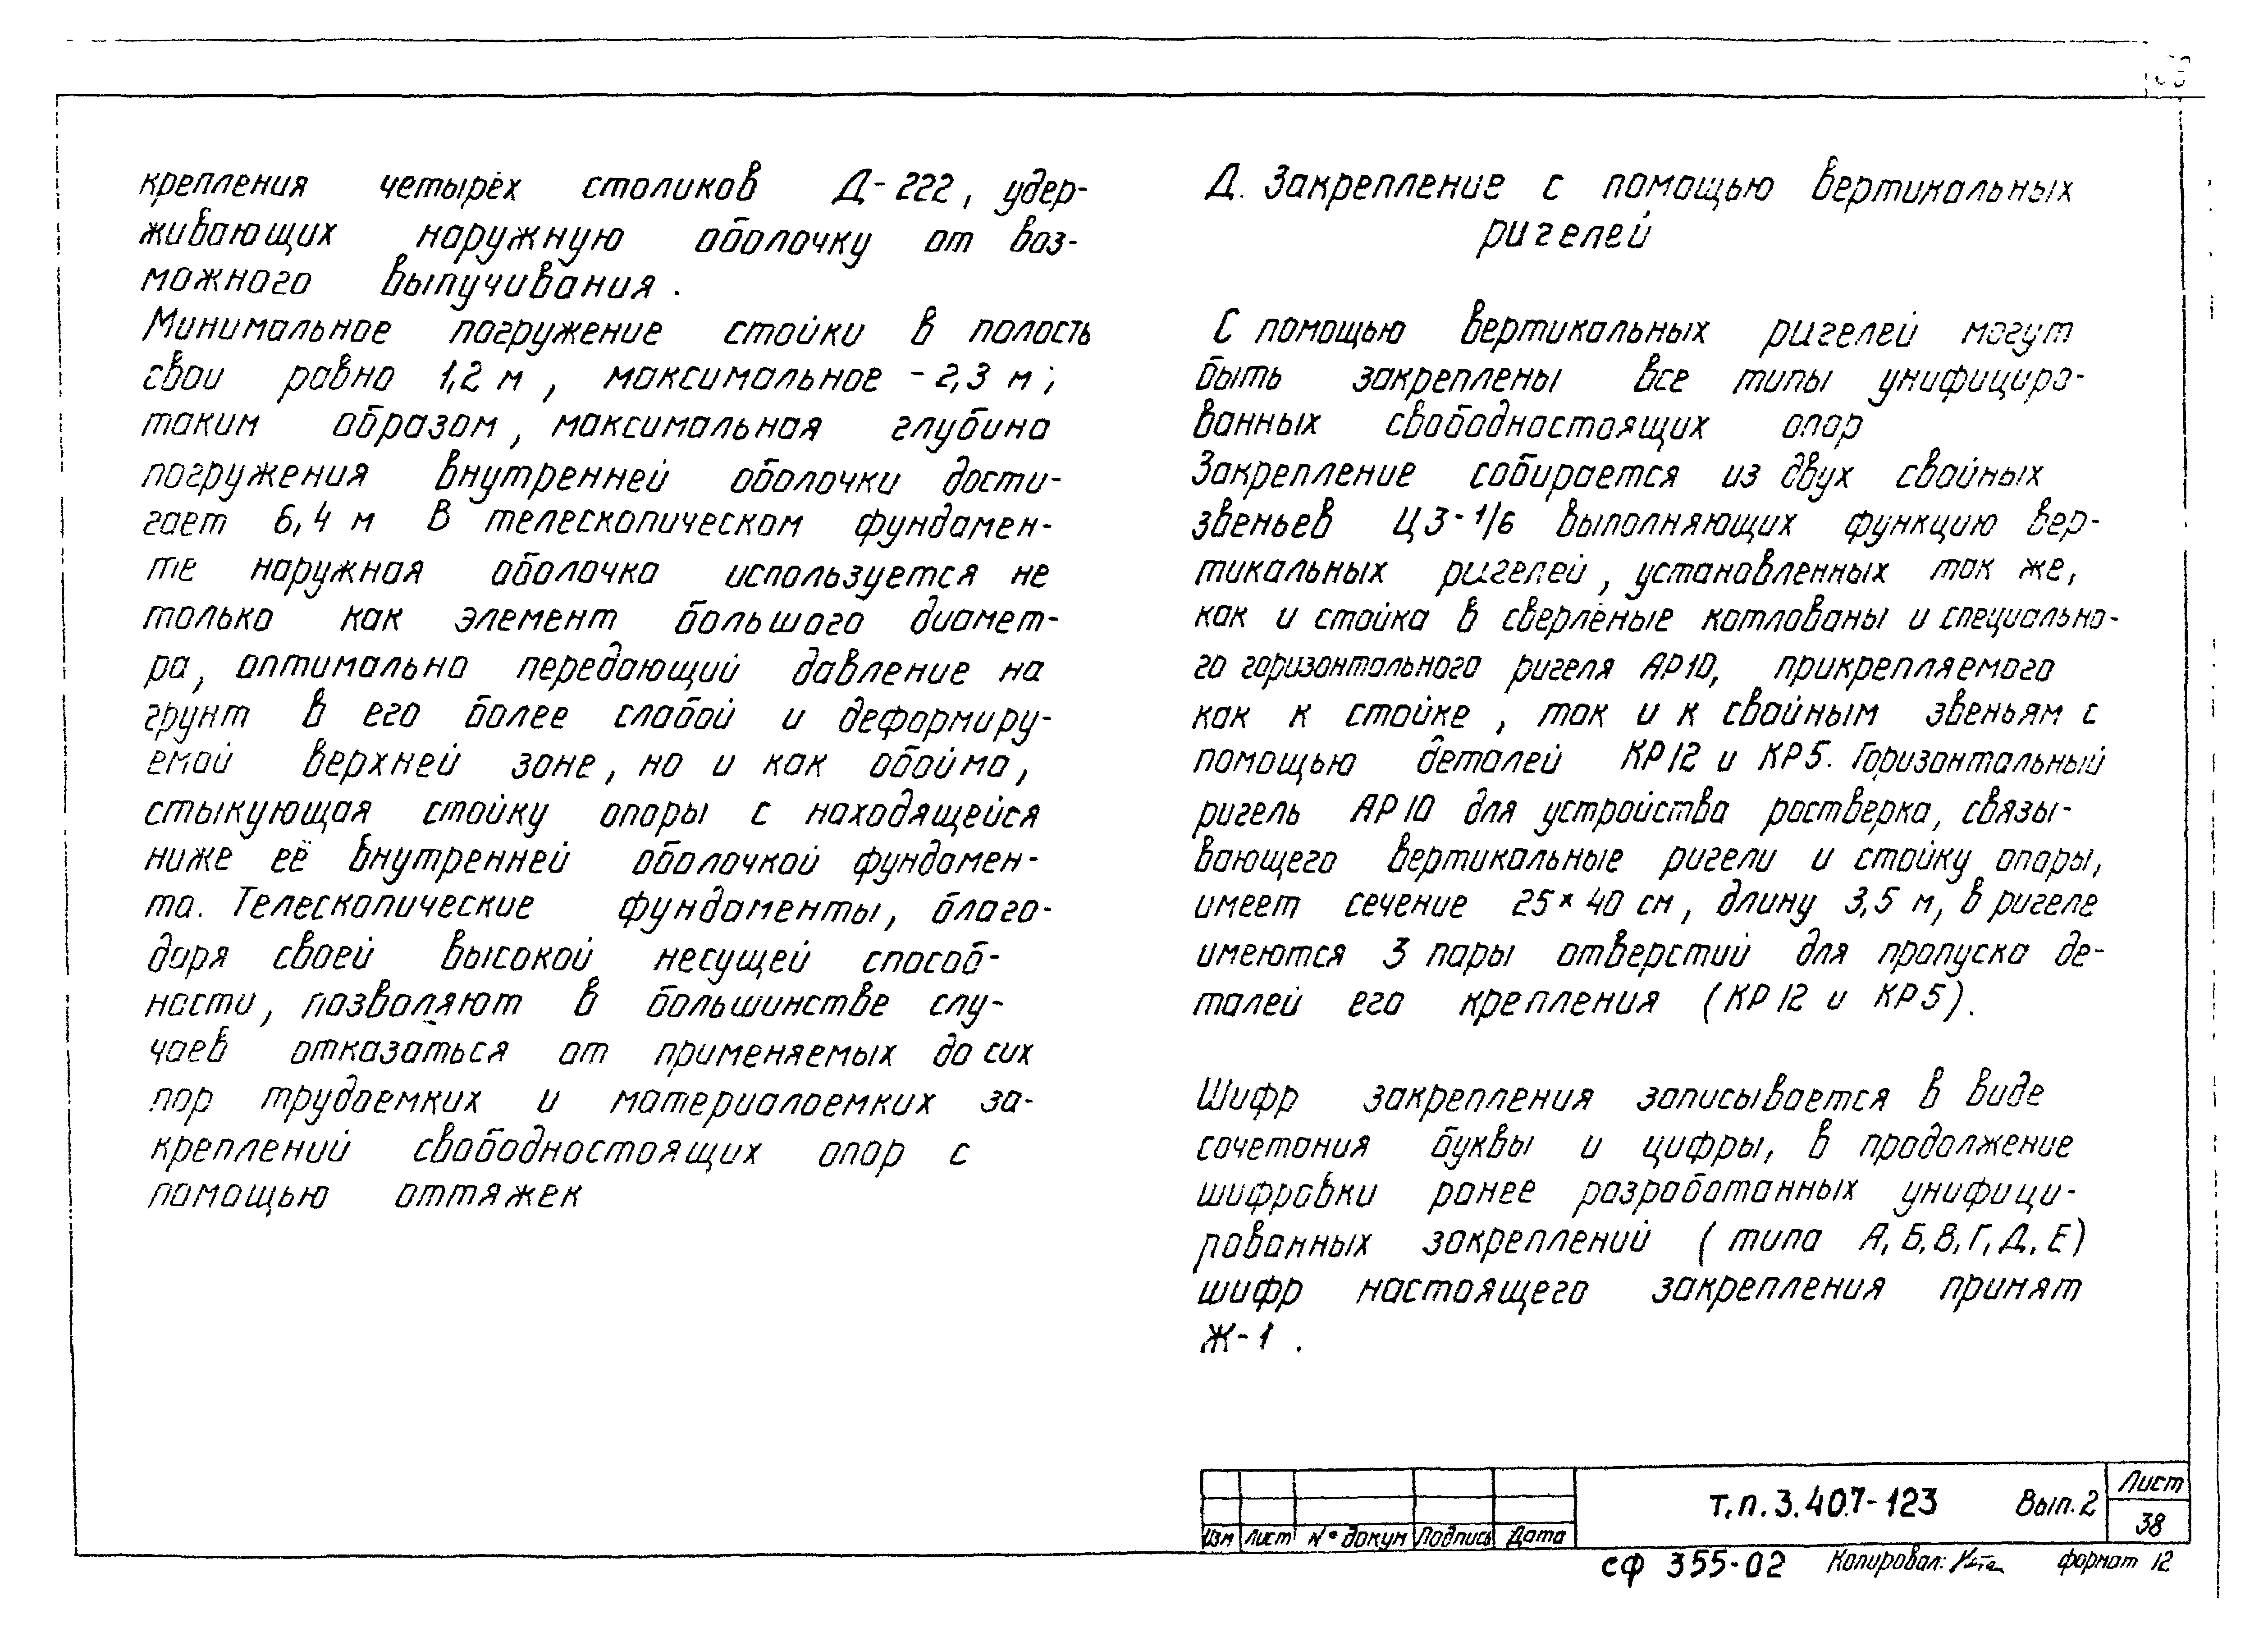 крепления четырёх столиков Д-222, удер-
живающих наружную оболочку от воз-
можного выпучивания.
Минимальное погружение стойки в полость
сваи равно 1,2 м, максимальное - 2,3 м;
таким образом, максимальная глубина
погружения внутренней оболочки дости-
гает 6,4 м В телескопическом фундамен-
те наружная оболочка используется не
только как элемент большого диамет-
ра, оптимально передающий давление на
грунт в его более слабой и деформиру-
емой верхней зоне, но и как обойма,
стыкующая стойку опоры с находящейся
ниже её внутренней оболочкой фундамен-
та. Телескопические фундаменты, благо-
даря своей высокой несущей способ-
ности, позволяют в большинстве слу-
чаев отказаться от применяемых до сих
пор трудоемких и материалоемких за-
креплений свободностоящих опор с
помощью оттяжек
Д. Закрепление с помощью вертикальных
ригелей
С помощью вертикальных ригелей могут
быть закреплены все типы унифициро-
ванных свободностоящих опор
Закрепление собирается из двух свайных
звеньев ЦЗ-1/6 выполняющих функцию вер-
тикальных ригелей, установленных так же,
как и стойка в сверлёные котлованы и специально-
го горизонтального ригеля АР10, прикрепляемого
как к стойке, так и к свайным звеньям с
помощью деталей КР12 и КР5. Горизонтальный
ригель АР10 для устройства ростверка, связы-
вающего вертикальные ригели и стойку опоры,
имеет сечение 25×40 см, длину 3,5 м, в ригеле
имеются 3 пары отверстий для пропуска де-
талей его крепления (КР12 и КР5).
Шифр закрепления записывается в виде
сочетания буквы и цифры, в продолжение
шифровки ранее разработанных унифици-
рованных закреплений (типа А, Б, В, Г, Д, Е)
шифр настоящего закрепления принят
Ж-1.
т.п. 3.407-123 Вып. 2
Лист
38
Изм Лист № докум Подпись Дата
сф 355-02 Копировал: формат 12